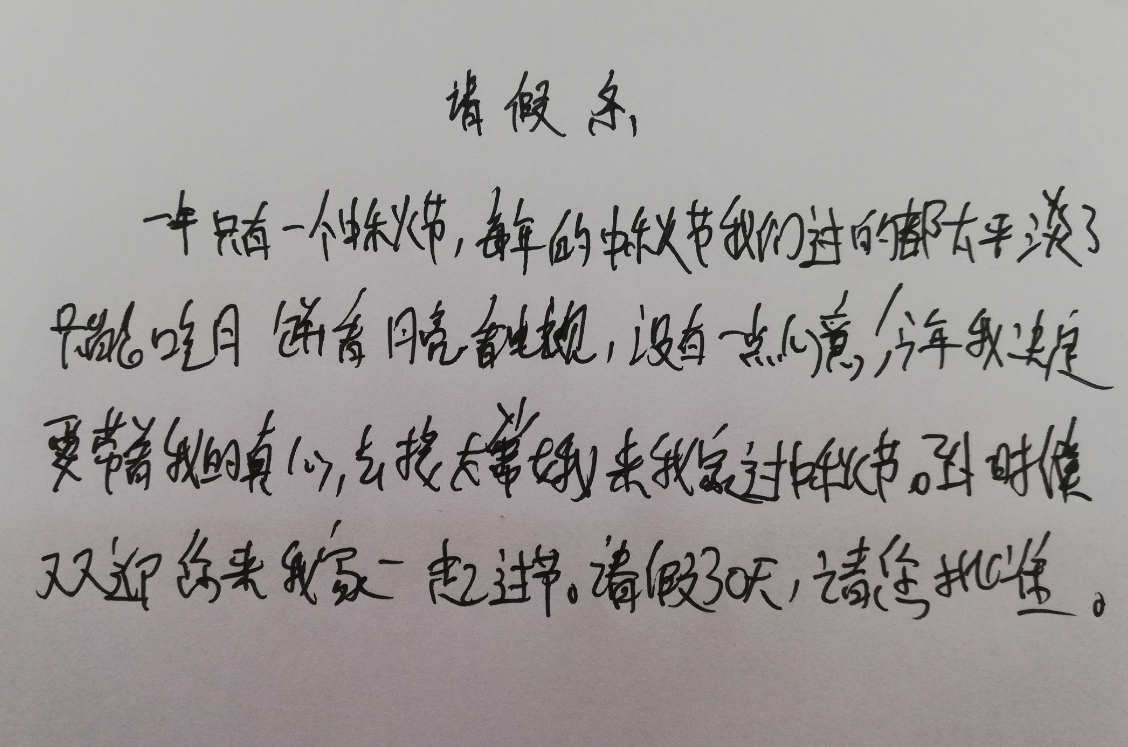 请假条
一年只有一个中秋节,每年的中秋节我们过的都太平淡了
只能吃月饼看月亮看电视,没有一点心意,今年我决定
要带着我的真心,去找嫦娥来我家过中秋节。到时候
欢迎你来我家一起过节。请假30天,请您批准。